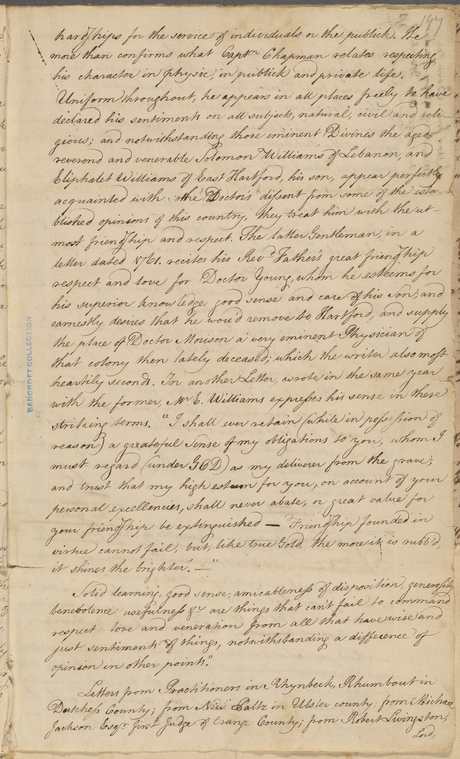 147
hardships for the service of individuals or the publick. He
more than confirms what Captn Chapman relates respecting
his character in physic, in publick and private life.
Uniform throughout, he appears in all places freely to have
declared his sentiments on all subjects, natural, civil and reli
gious; and notwithstanding those eminent Divines the aged
reverend and venerable Solomon Williams of Lebanon, and
Eliphalet Williams of East Hartford, his son, appear perfectly
acquainted with the Doctors dissent from some of the esta
blished opinions of this country, they treat him with the ut
most friendship and respect. The latter Gentleman, in a
letter dated 1761. recites his Revd. Fathers great friendship
respect and love for Doctor Young, whom he esteems for
his superior knowledge good sense and care of his son; and
earnestly desires that he would remove to Hartford, and supply
the place of Doctor Morison a very eminent Physician of
that colony then lately deceased; which the writer also most
heartily seconds. In another Letter, wrote in the same year
with the former, Mr E. Williams expresses his sense in these
striking terms. "I shall ever retain (while in possession of
reason) a greateful Sense of my obligations to you, whom I
must regard (under GOD) as my deliverer from the grave;
and trust that my high esteem for you, on account of your
personal excellencies, shall never abate, or great value for
your friendship be extinguished — Friendship founded in
virtue cannot fail; but, like true Gold, the more it is rubb'd,
it shines the brighter. — "
Solid learning, good sense, amicableness of disposition, generosity
benevolence usefulness &c are things that can't fail to command
respect love and veneration from all that have wise and
just sentiments of things, notwithstanding a difference of
opinion in other points."
Letters from Practitioners in Rhynbeck, Rhumbout in
Dutchess County; from New Paltz in Ulster county; from Michael
Jackson Esqr first Judge of Orange County; from Robert Livingston,
Lord,
BANCROFT COLLECTION